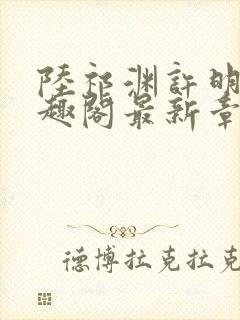 陸祁渊許明
趣閣最新章
德博拉克拉克